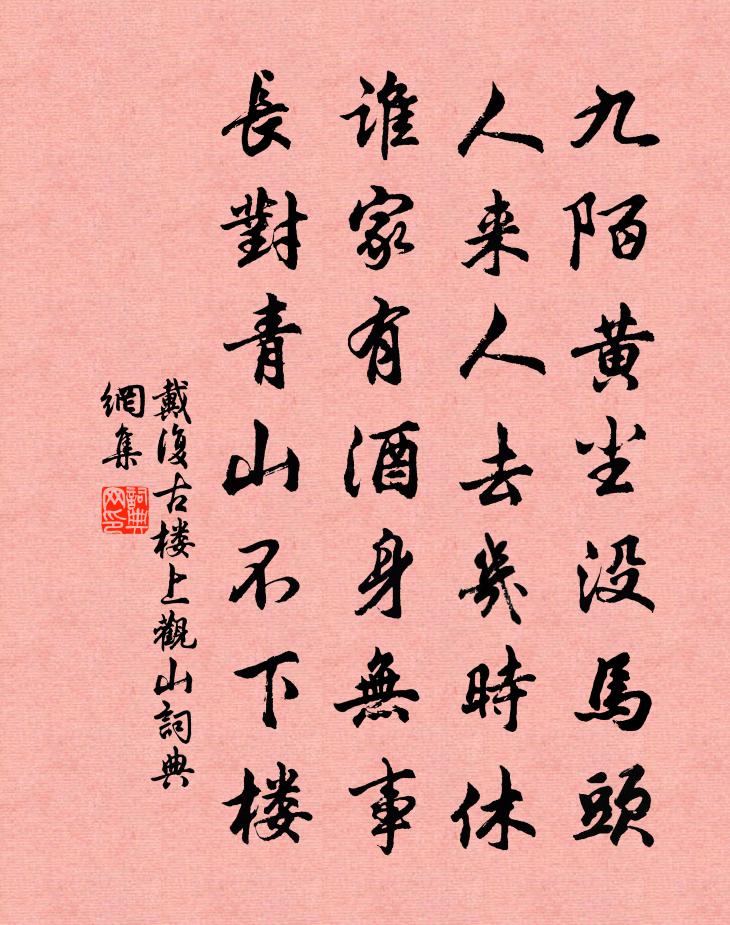 九陌黄尘没馬頭
人来人去幾時休
谁家有酒身無事
長對青山不下楼
戴復古楼上觀山詞典
網集
詞典
网印